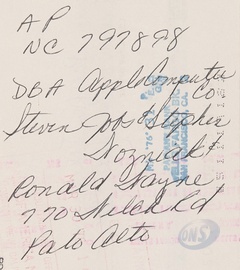 AP
NC 797898
DBA Apple Computer
Co
Steven Jobs & Stephen
Wozniak &
Ronald Wayne
770 Welch Rd
Palo Alto